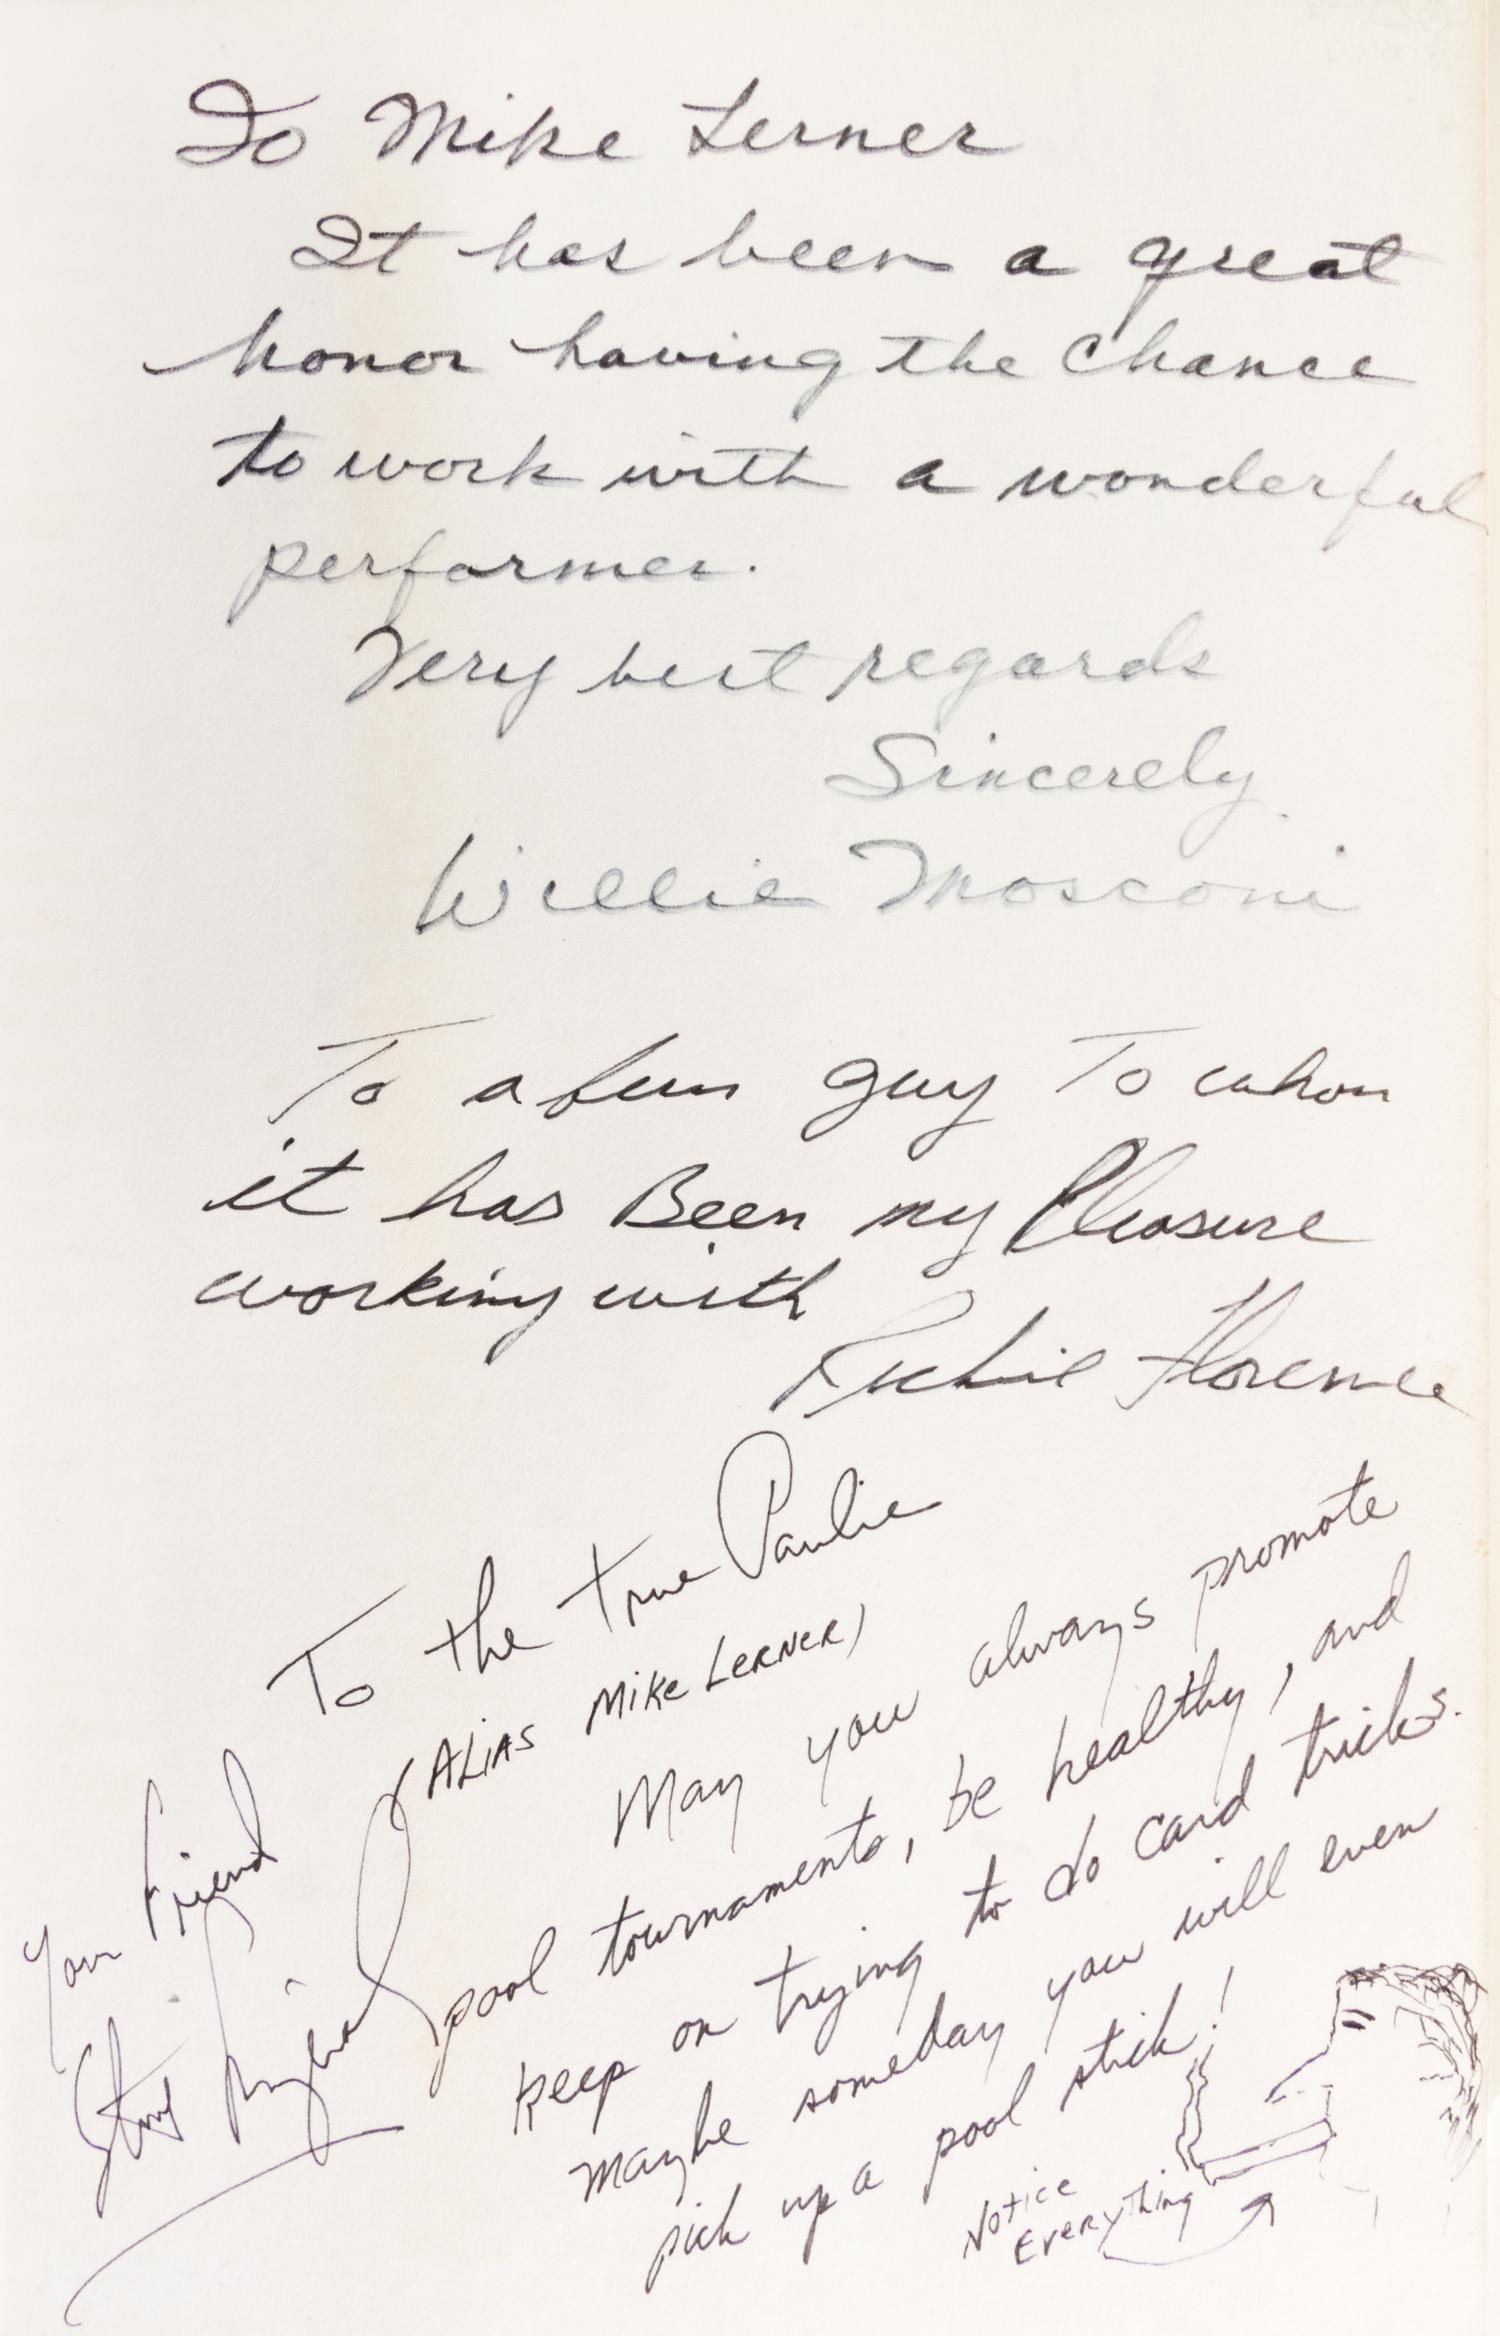 To Mike Lerner
It has been a great
honor having the chance
to work with a wonderful
performer.
Very best regards
Sincerely
Willie Mosconi
To a fun guy To whom
it has Been my Pleasure
working with
Richie Florence
To the true Paulie
(ALiAS Mike LERNER)
May you always promote
pool tournaments, be healthy, and
keep on trying to do card tricks.
maybe someday you will even
pick up a pool stick!
Notice
Everything
Your Friend